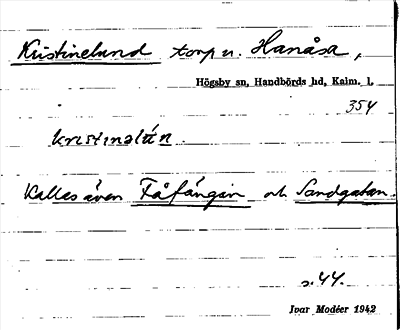 Kristinelund torp u. Hanåsa,
Högsby sn, Handbörds hd, Kalm. l.
354
kristinəlún.
Kallas även Fåfängan och Sandgatan.
s. 44.
Ivar Modéer 1942